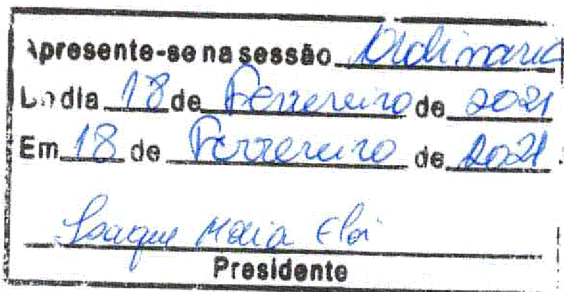 Apresente-se na sessão Ordinaria
Do dia 18 de Fevereiro de 2021
Em 18 de Fevereiro de 2021.
Isaque Maia Eloi
Presidente